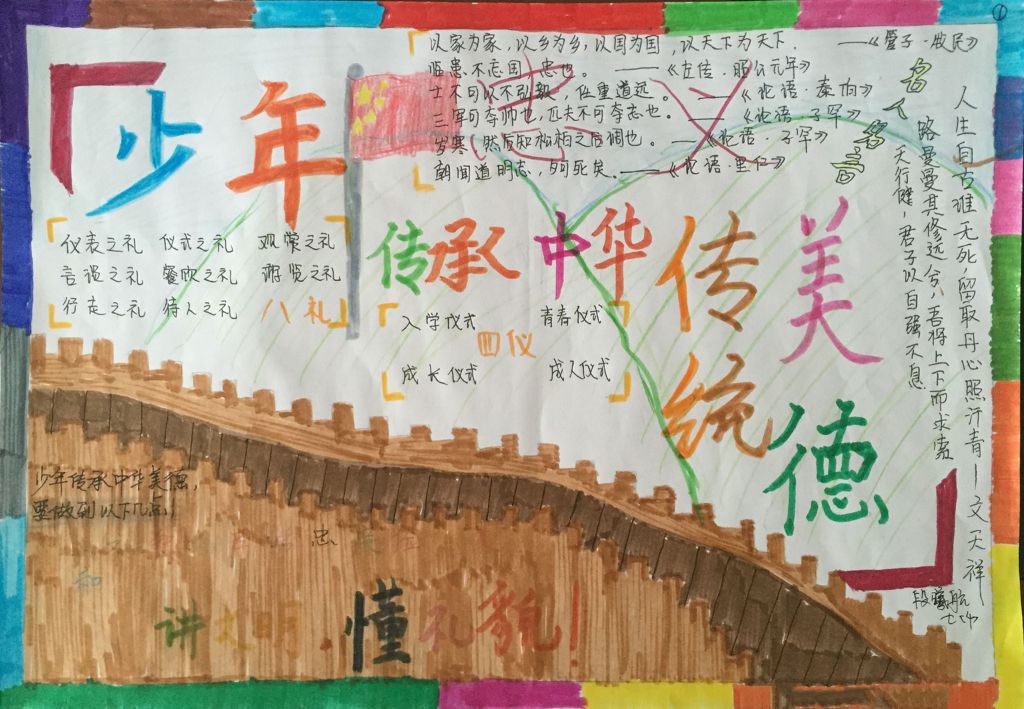 少年
传承中华
传统
美德
以家为家，以乡为乡，以国为国，以天下为天下．——《管子·牧民》
临患不忘国，忠也。——《左传·昭公元年》
士不可以不弘毅，任重道远。——《论语·泰伯》
三军可夺帅也，匹夫不可夺志也。——《论语·子罕》
岁寒，然后知松柏之后凋也。——《论语·子罕》
朝闻道明志，夕可死矣．——《论语·里仁》
名人名言
人生自古谁无死，留取丹心照汗青——文天祥
路曼曼其修远兮，吾将上下而求索
天行健，君子以自强不息
仪表之礼 仪式之礼 观赏之礼
言谈之礼 餐饮之礼 游览之礼
行走之礼 待人之礼 八礼
入学仪式 青春仪式
四仪
成长仪式 成人仪式
少年传承中华美德，
要做到以下几点：
忠
和
讲文明．懂礼貌！
航
①